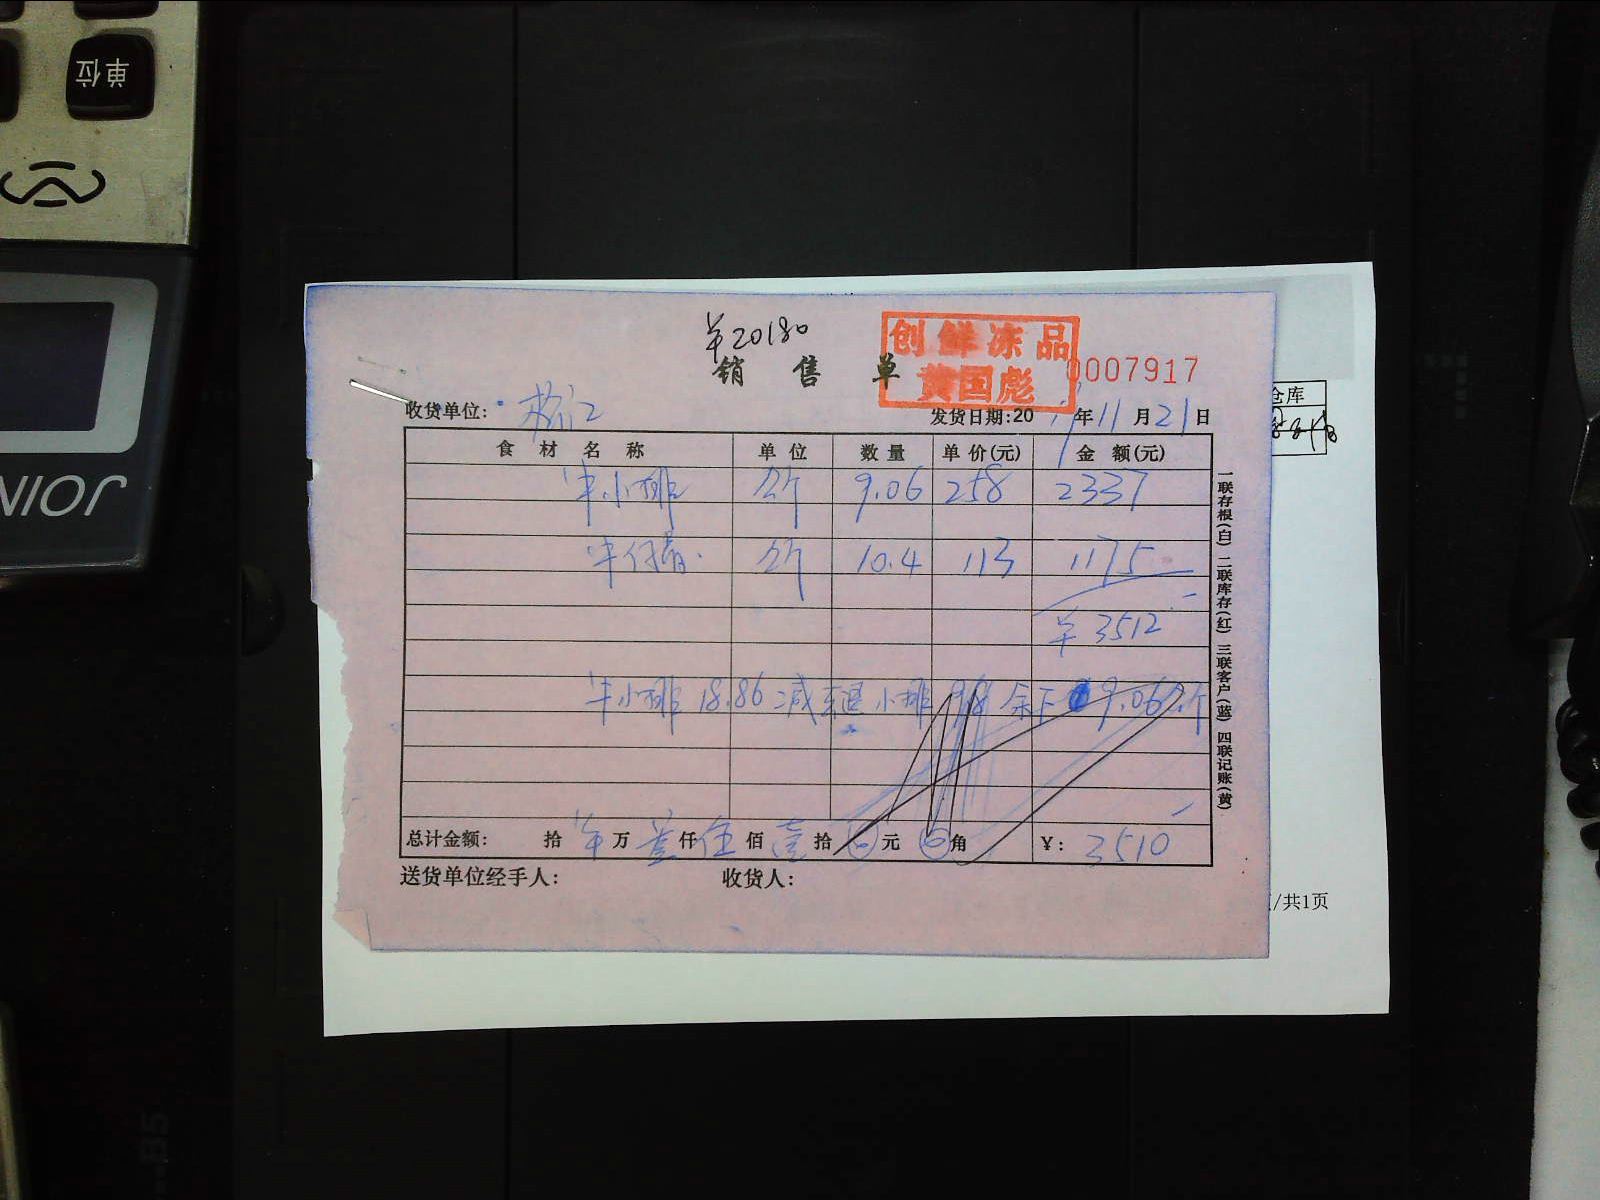 单位
JOINUS
¥20180
创鲜冻品
黄国彪
销售单
0007917
收货单位:
发货日期:20 年11月21日
仓库
食材名称 单位 数量 单价(元) 金额(元)
牛小排 公斤 9.06 258 2337
公斤 10.4 113 1175
¥3512
牛小排 18.86 减 小排 9.8 余下 9.06公斤
总计金额: 拾 ¥万 叁仟 伍佰 壹拾 元 角 ¥: 3510
送货单位经手人: 收货人:
一联存根(白) 二联库存(红) 三联客户(蓝) 四联记账(黄)
/共1页